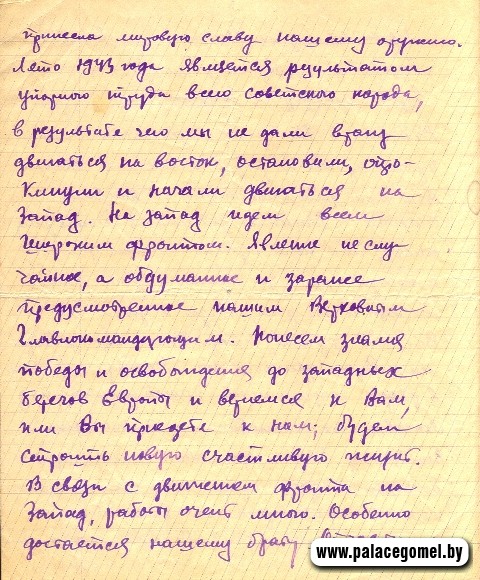 принесла мировую славу нашему оружию.
Лето 1943 года является результатом
упорного труда всего советского народа,
в результате чего мы не дали врагу
двигаться на восток, остановили, отбро-
кинули и начали двигаться на
Запад. На запад идем всем
широким фронтом. Явление не слу-
чайное, а обдуманное и заранее
предусмотренное нашим Верховным
Главнокомандующим. Понесем знамя
победы и освобождения до западных
берегов Европы и вернемся к Вам,
или Вы приедете к нам; будем
строить новую счастливую жизнь.
В связи с движением фронта на
Запад, работы очень много. Особенно
достается нашему брату
www.palacegomel.by